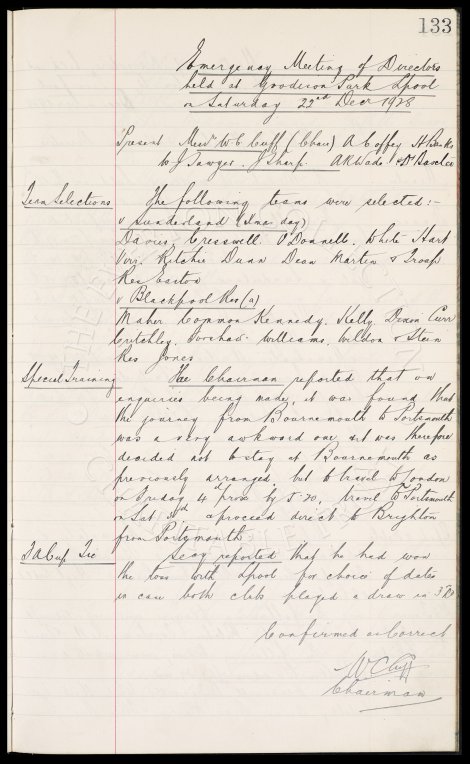 133
Emergency Meeting of Directors
held at Goodison Park Lpool
on Saturday 22nd Decr 1928
Present Messrs W C Cuff (Chair) A Coffey H Banks
W J Sawyer. J Sharp. A R Wade & Dr Baxter
Team Selections The following teams were selected:-
v Sunderland (Xmas day)
Davies, Cresswell. O'Donnell. White Hart
Virr. Ritchie Dunn Dean Martin & Troup
Res Easton
v Blackpool Res (a)
Maher Common Kennedy. Kelly Dixon Curr
Critchley. Williams. Weldon & Stein
Res Jones
Special Training The Chairman reported that on
enquiries being made, it was found that
the journey from Bournemouth to Portsmouth
was a very awkward one & it was therefore
decided not to stay at Bournemouth as
previously arranged, but to travel to London
on Friday 4th prox by 5-20, travel to Portsmouth
on Sat & proceed direct to Brighton
from Portsmouth
F A Cup Tie Secy reported that he had won
the toss with Lpool for choice of dates
in case both clubs played a draw in 3rd
Confirmed as Correct
W C Cuff
Chairman